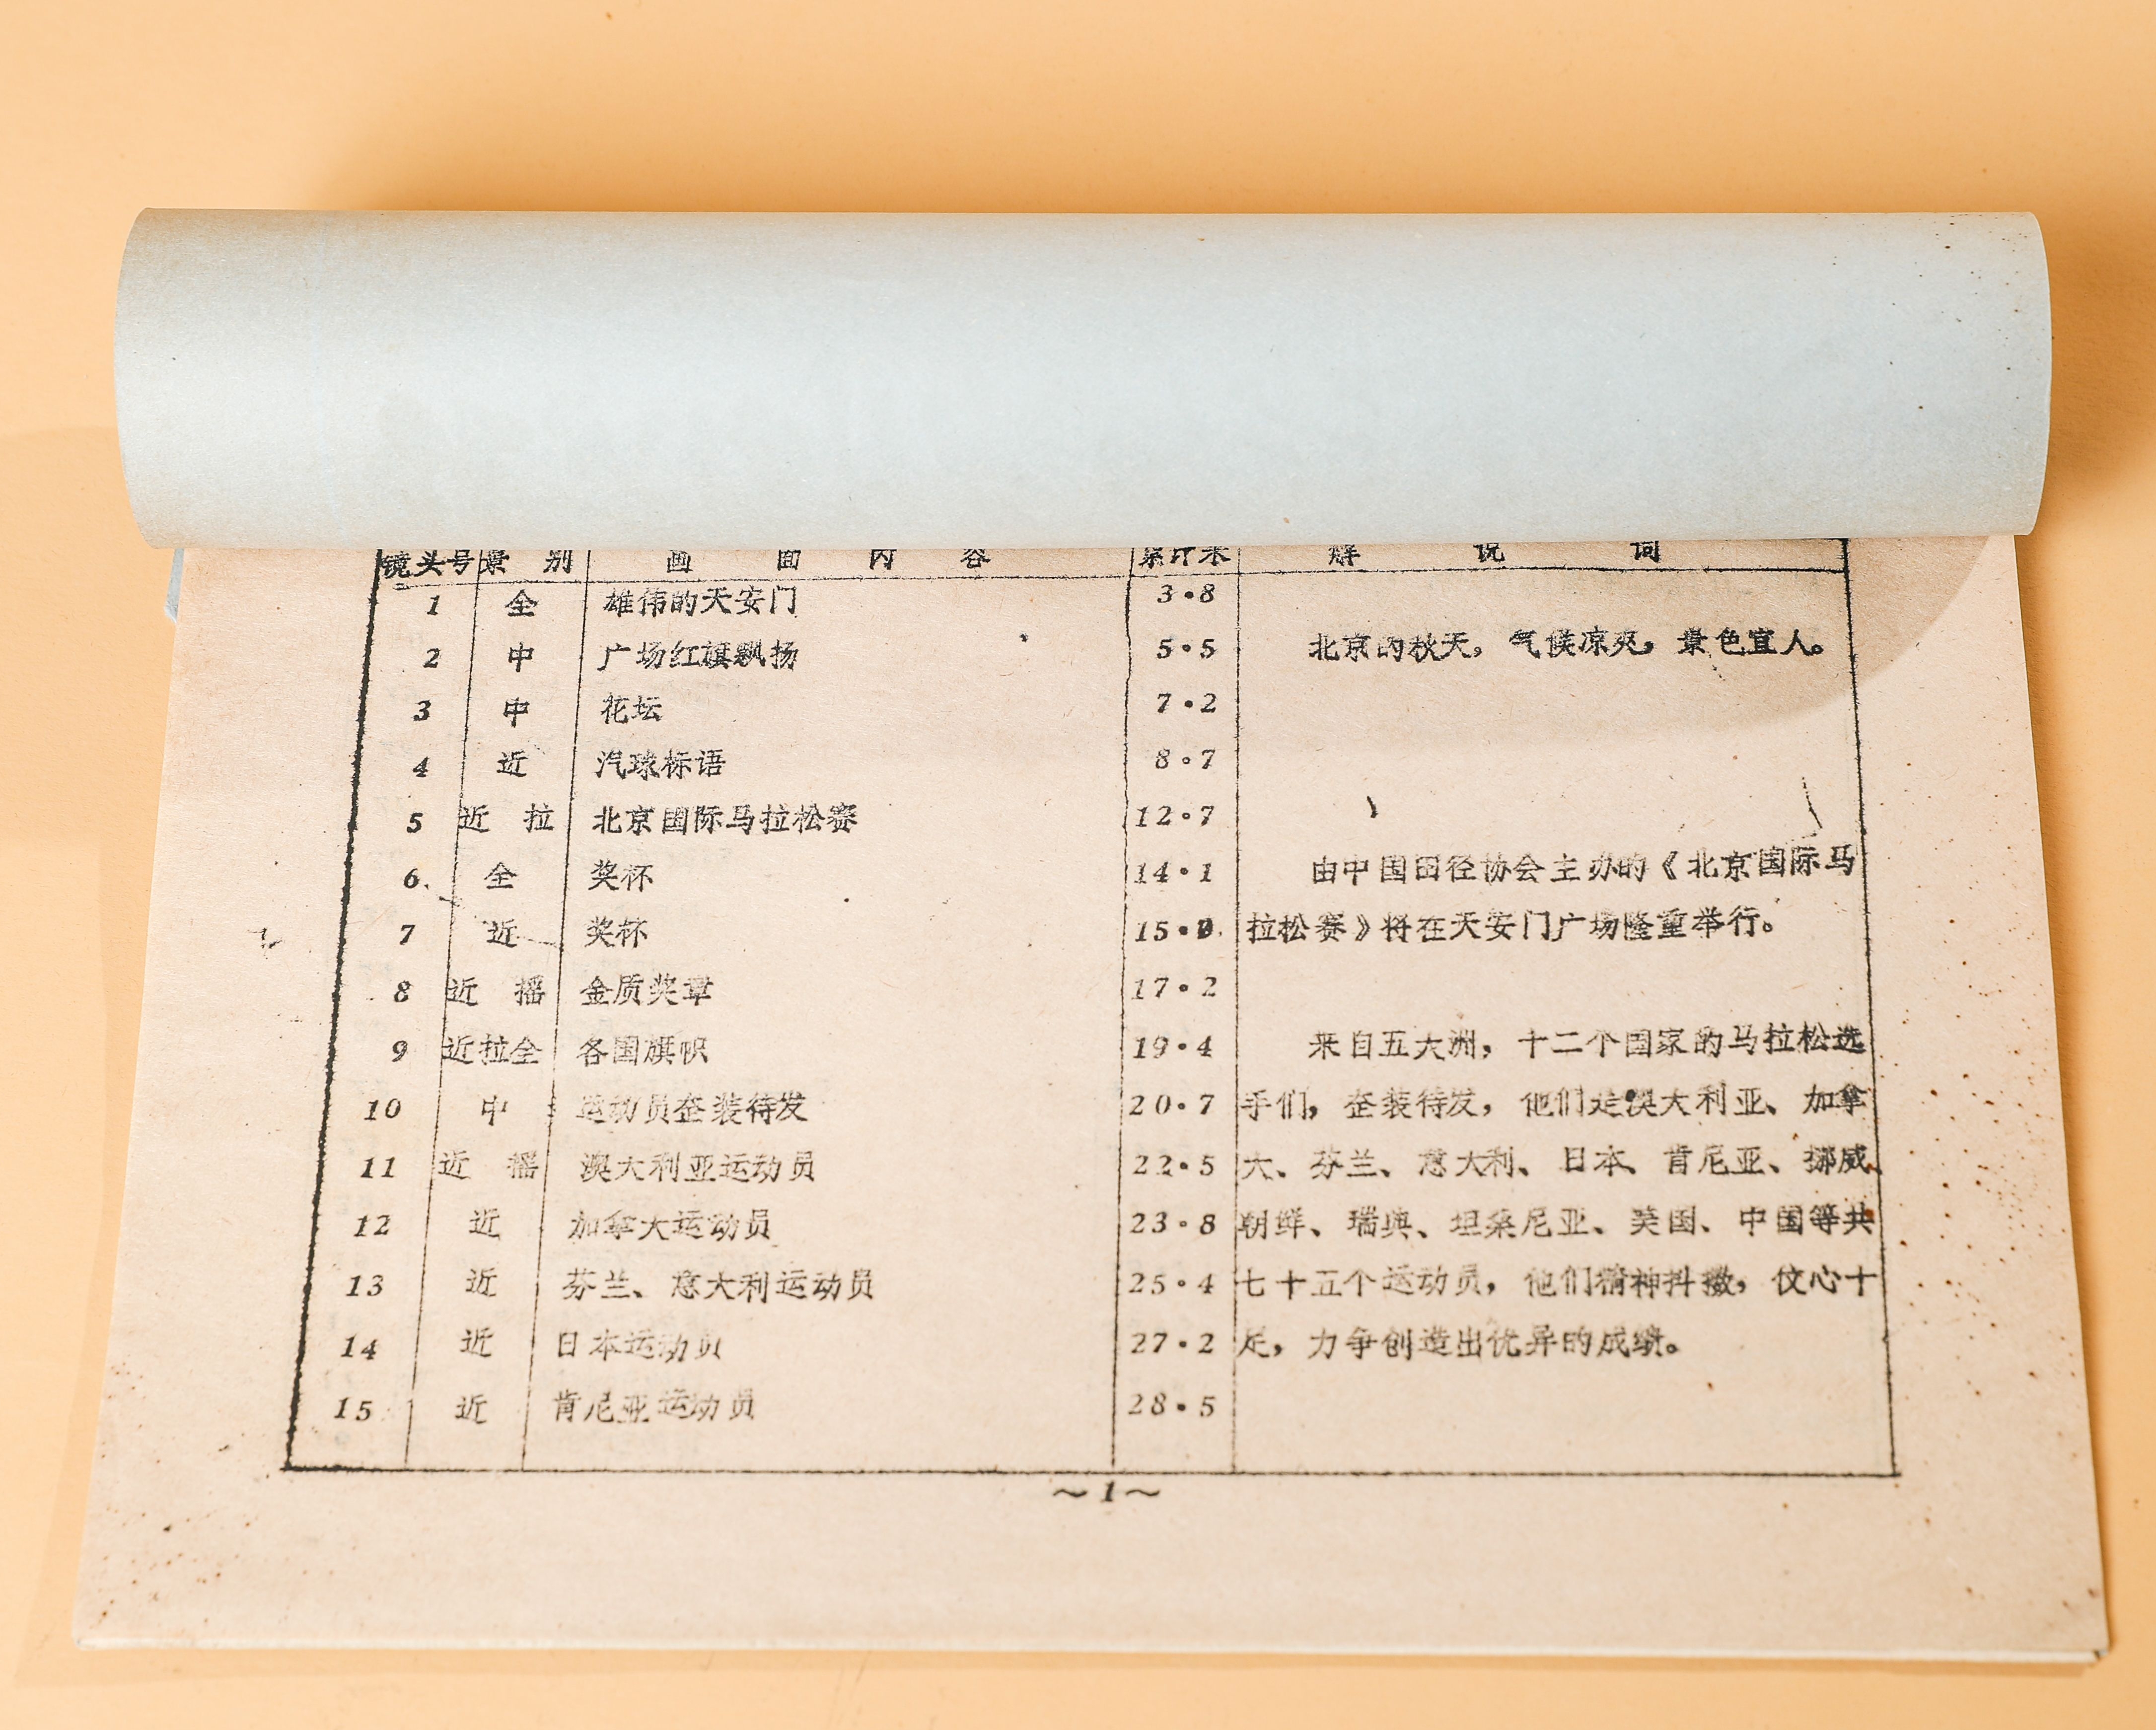 镜头号 景 别 画 面 内 容 累计米 解 说 词
1 全 雄伟的天安门 3·8
2 中 广场红旗飘扬 5·5 北京的秋天，气候凉爽，景色宜人。
3 中 花坛 7·2
4 近 汽球标语 8·7
5 近 拉 北京国际马拉松赛 12·7
6 全 奖杯 14·1 由中国田径协会主办的《北京国际马
7 近 奖杯 15· 拉松赛》将在天安门广场隆重举行。
8 近 摇 金质奖章 17·2
9 近拉全 各国旗帜 19·4 来自五大洲，十二个国家的马拉松选
10 中 运动员整装待发 20·7 手们，整装待发，他们是澳大利亚、加拿
11 近 摇 澳大利亚运动员 22·5 大、芬兰、意大利、日本、肯尼亚、挪威、
12 近 加拿大运动员 23·8 朝鲜、瑞典、坦桑尼亚、美国、中国等共
13 近 芬兰、意大利运动员 25·4 七十五个运动员，他们精神抖擞，伩心十
14 近 日本运动员 27·2 足，力争创造出优异的成绩。
15 近 肯尼亚运动员 28·5
～1～